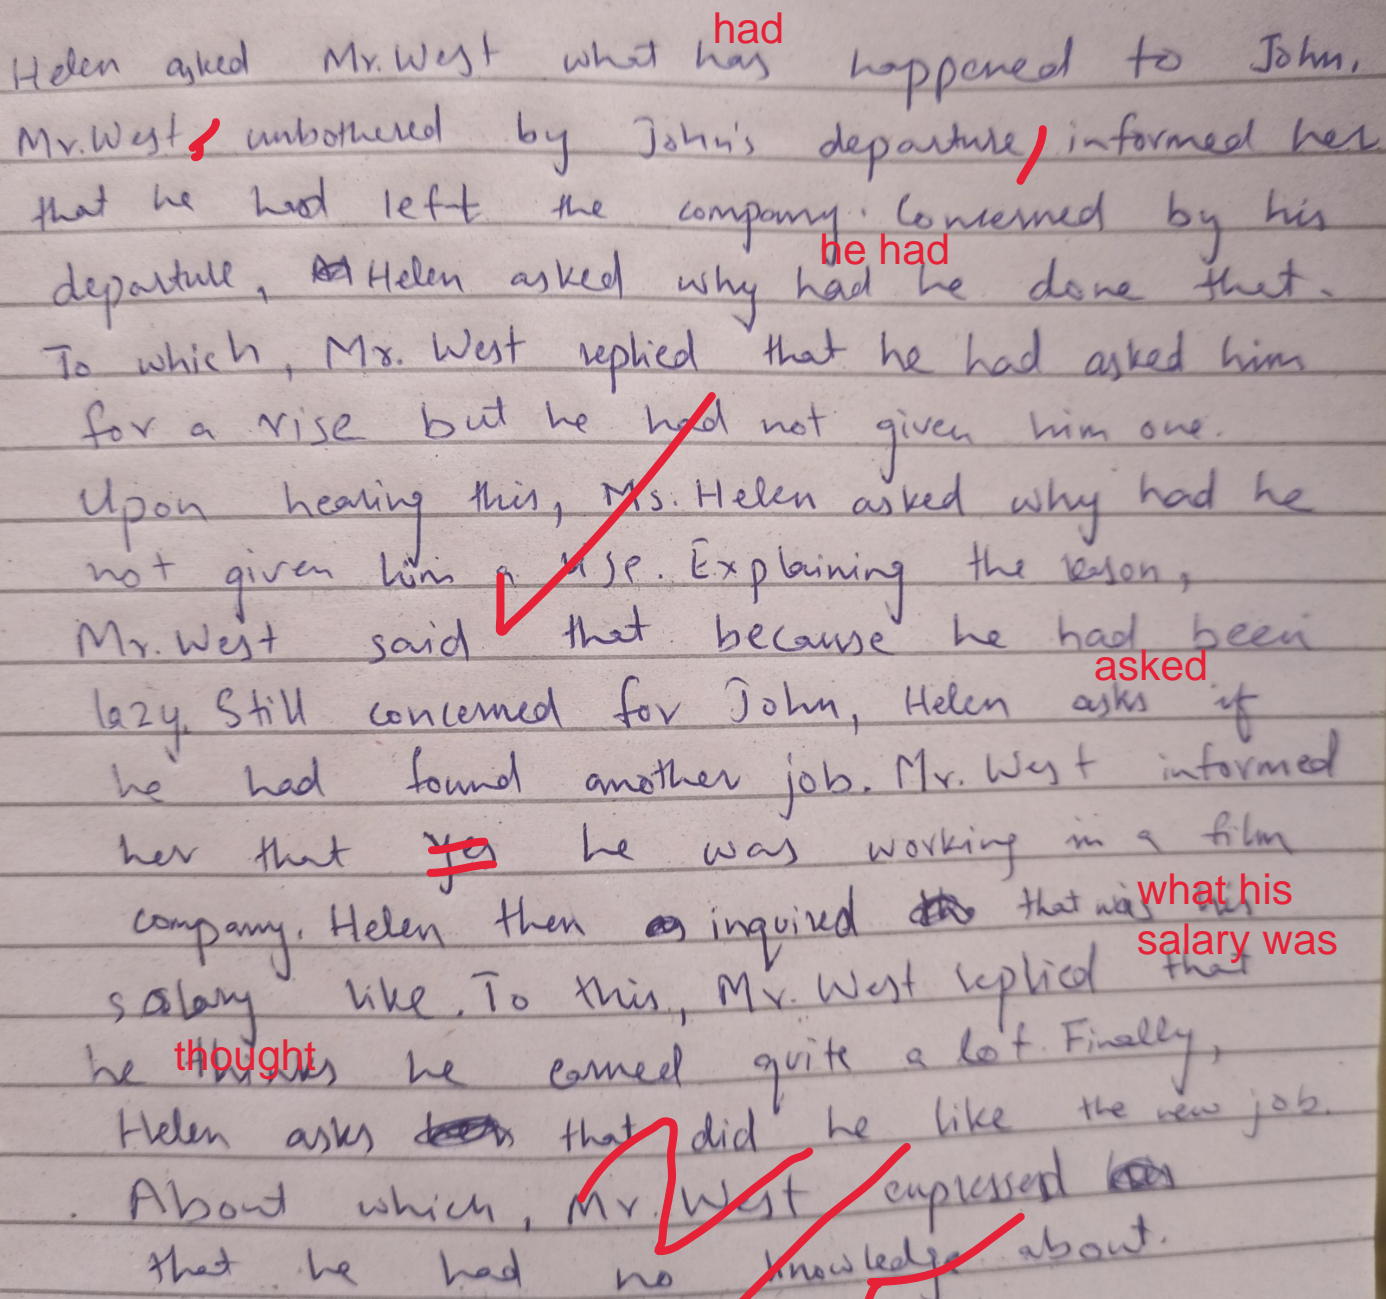 had
Helen asked Mr. West what has happened to John.
Mr. West, unbothered by John's departure, informed her
that he had left the company. Concerned by his
he had
departure, Helen asked why had he done that.
To which, Mr. West replied that he had asked him
for a rise but he had not given him one.
Upon hearing this, Ms. Helen asked why had he
not given him a rise. Explaining the reason,
Mr. West said that because he had been
asked
lazy. Still concerned for John, Helen asks if
he had found another job. Mr. West informed
her that yes he was working in a film
what his
company. Helen then inquired that was his
salary was
salary like. To this, Mr. West replied that
thought
he thinks he earned quite a lot. Finally,
Helen asks that did he like the new job.
About which, Mr. West expressed
that he had no knowledge about.